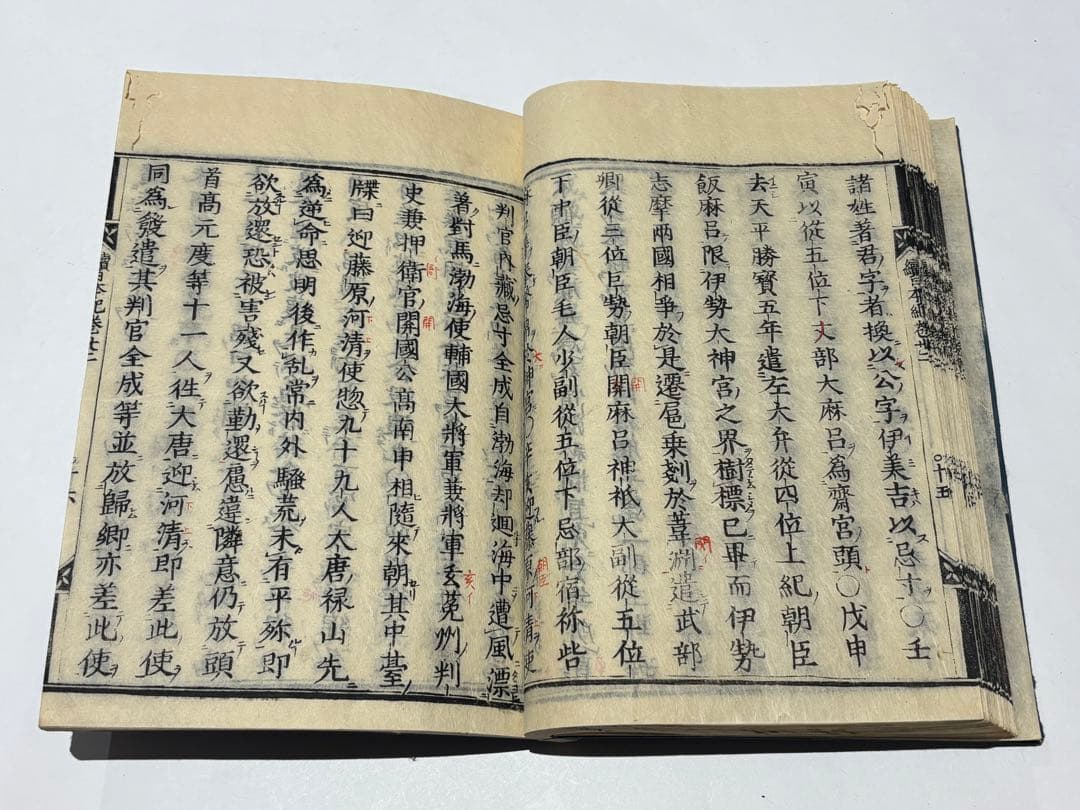 諸姓著君字者換以公字伊美吉以忌寸〇壬
寅以從五位下丈部大麻呂爲齋宮頭〇戊申
去天平勝寶五年遣左大弁從四位上紀朝臣
飯麻呂限伊勢大神宮之界樹標已畢而伊勢
志摩兩國相爭於是遷尾垂剗於葦淵遣武部
卿從三位巨勢朝臣關麻呂神祇大副從五位
下中臣朝臣毛人少副從五位下忌部宿祢呰
判官內藏忌寸全成自渤海却迴海中遭風漂
著對馬渤海使輔國大將軍兼將軍玄菟州判
史兼押衙官開國公高南申相隨來朝其中臺
牒曰迎藤原河清使惣九十九人大唐祿山先
爲逆命思明後作乱常內外騷荒未有平殄即
欲放還恐被害殘又欲勒還慮違隣意仍放頭
首高元度等十一人徃大唐迎河清即差此使
同爲發遣其判官全成等並放歸卿亦差此使
續日本紀卷廿二
十五